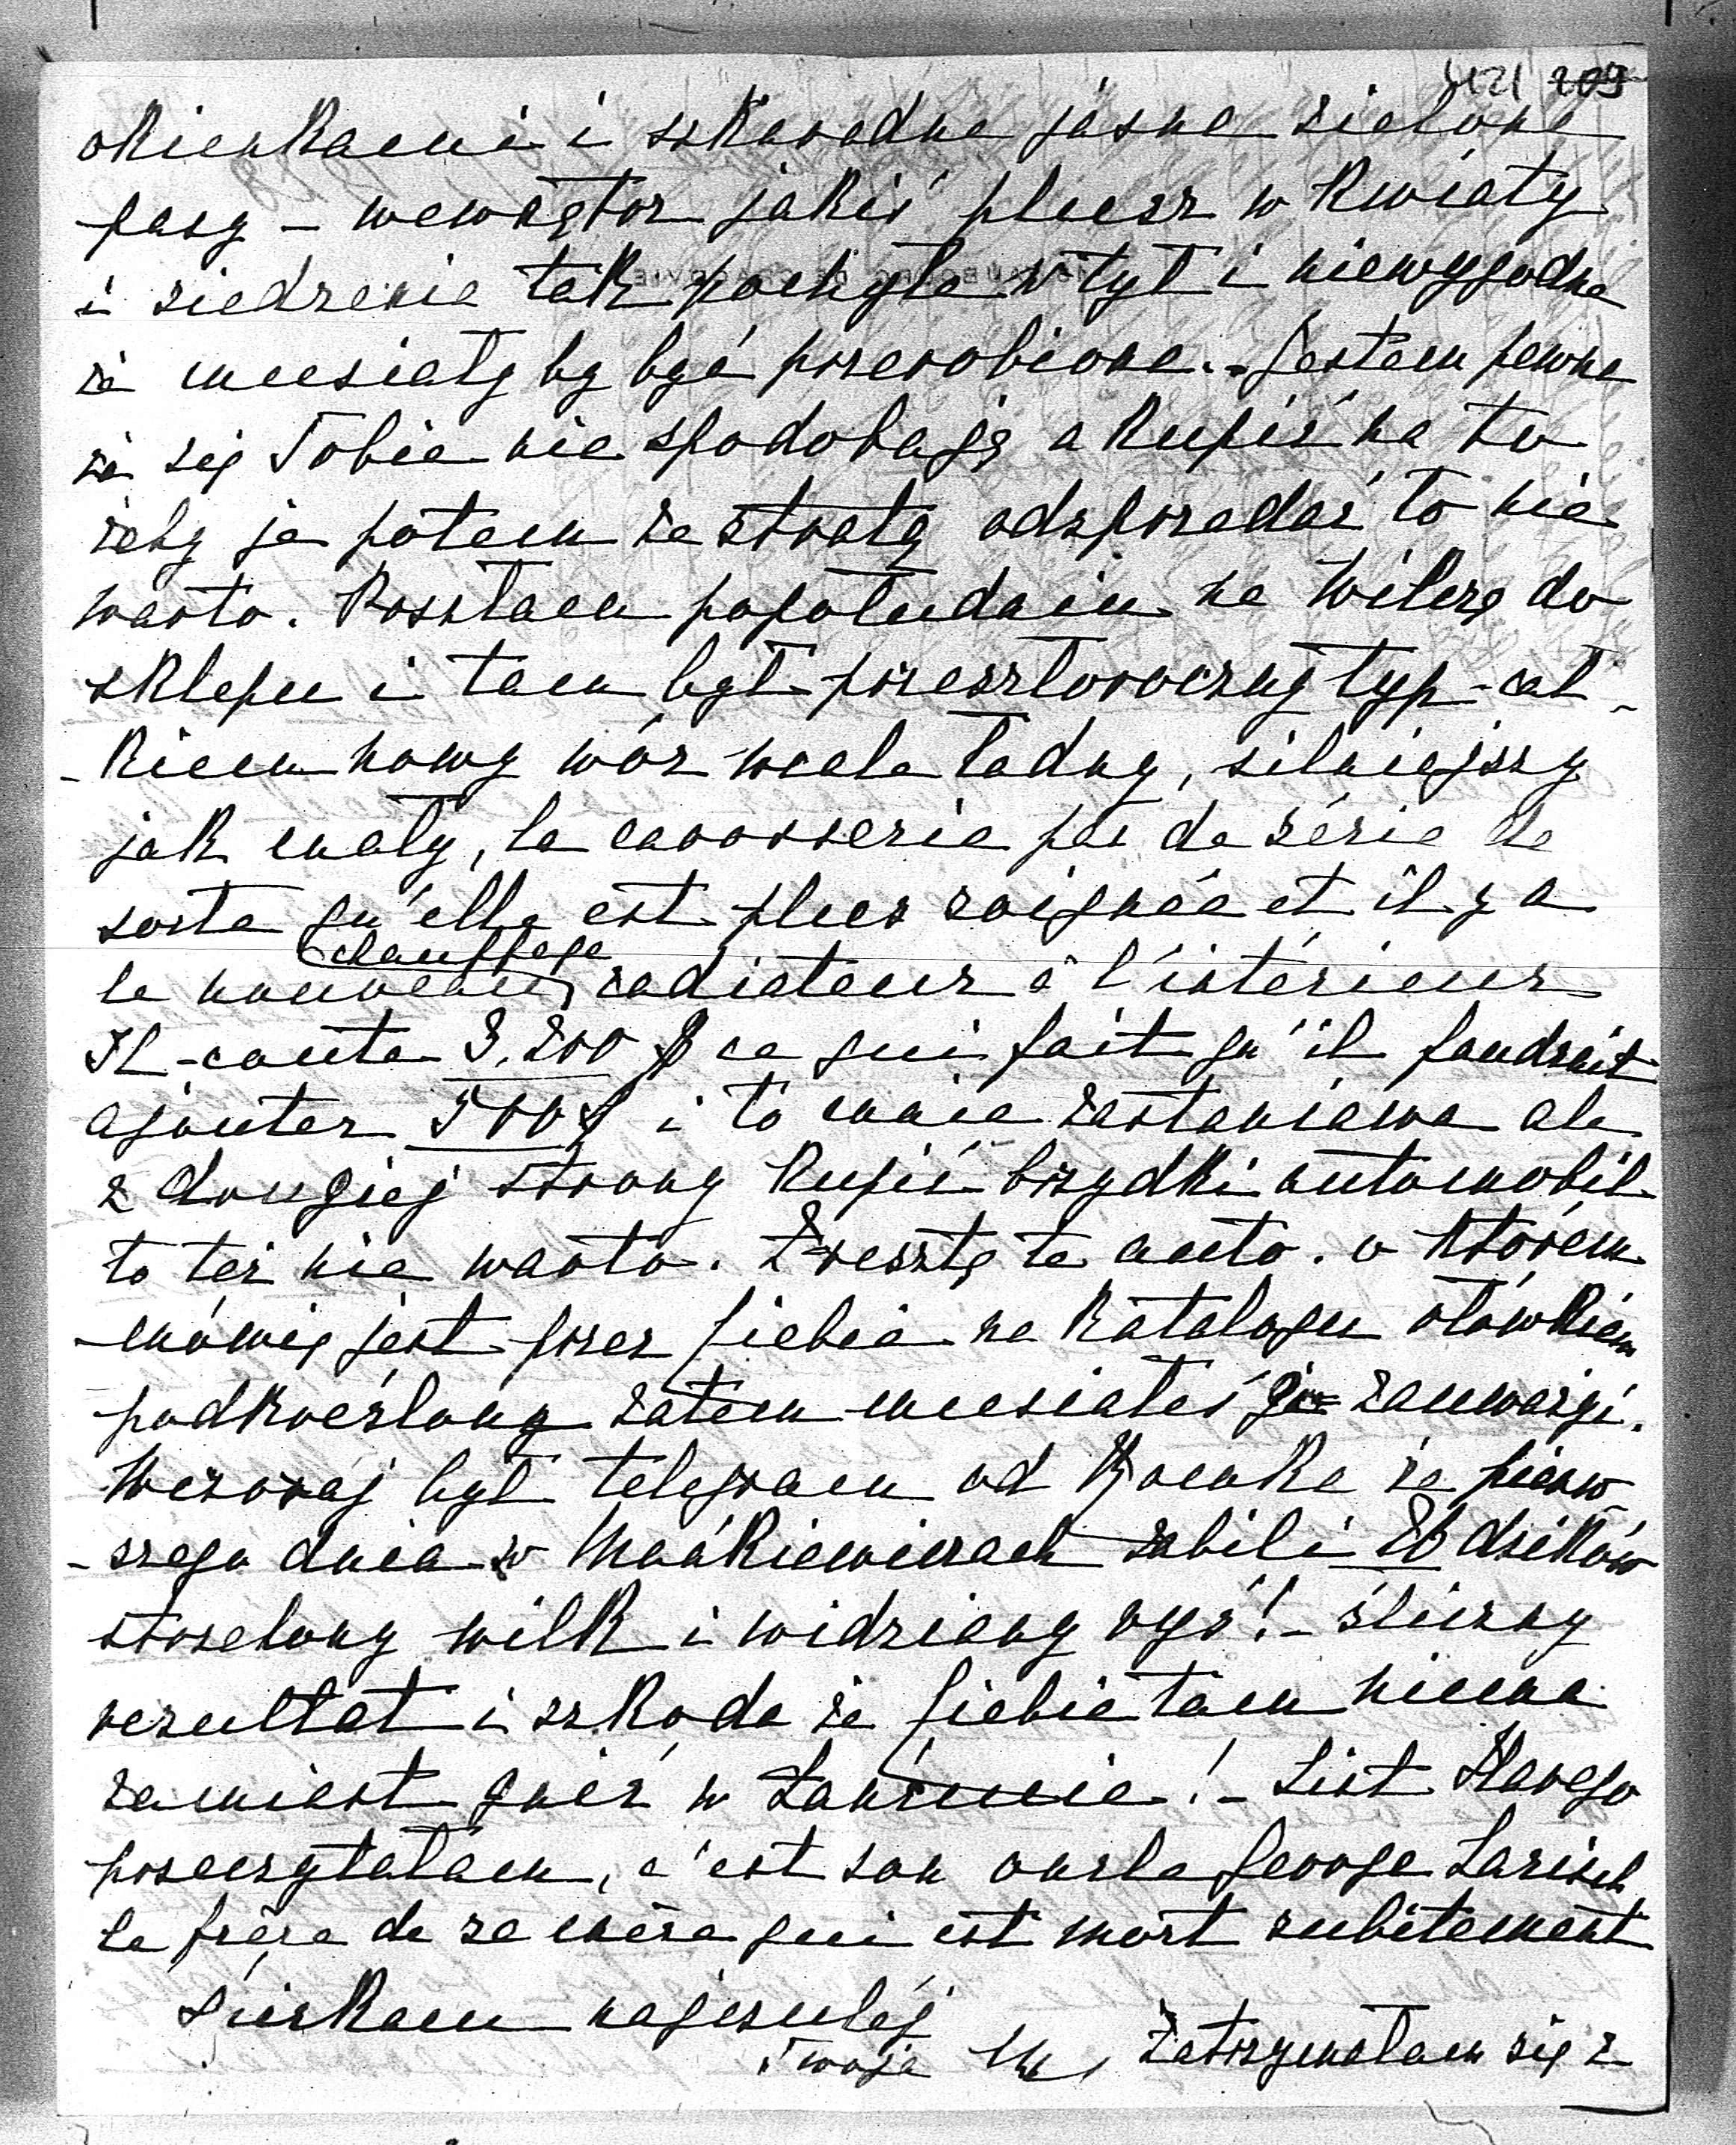 121 209
okienkami i szkaradne jasne zielone
pasy – wewnątrz jakiś plusz w kwiaty
i siedzenie tak pochyłe w tył i niewygodne
że musiały by być przerobione. – Jestem pewna
że się Tobie nie spodobają a kupić na to
żeby je potem ze stratą odsprzedać to nie
warto. Poszłam popołudniu na Wilczą do
sklepu i tam był przeszłoroczny typ – cał-
-kiem nowy wóz wcale ładny, silniejszy
jak mały, la carrosserie pas de série de
sorte qu'elle est plus soignée et il y a
chauffage
le nouveau radiateur à l'intérieur
Il coute 3.200 $ ce qui fait qu'il faudrait
ajouter 500 $ i to mnie zastanawia ale
z drugiej strony kupić brzydki automobil
to też nie warto. Zresztą te auto. o którem
mówię jest przez Ciebie na katalogu ołówkiem
podkreślony zatem musiałeś go zauważyć.
Wczoraj był telegram od Romka że pierw-
-szego dnia w Mańkiewiczach zabili 26 dzików
strzelony wilk i widziany ryś! – śliczny
rezultat i szkoda że Ciebie tam niema
zamiast gnić w Łańcucie! – List Starego
przeczytałam, c'est son oncle George Larisch
le frère de sa mère qui est mort subitement
Ściskam najczulej
Twoja Zatrzymałam się z